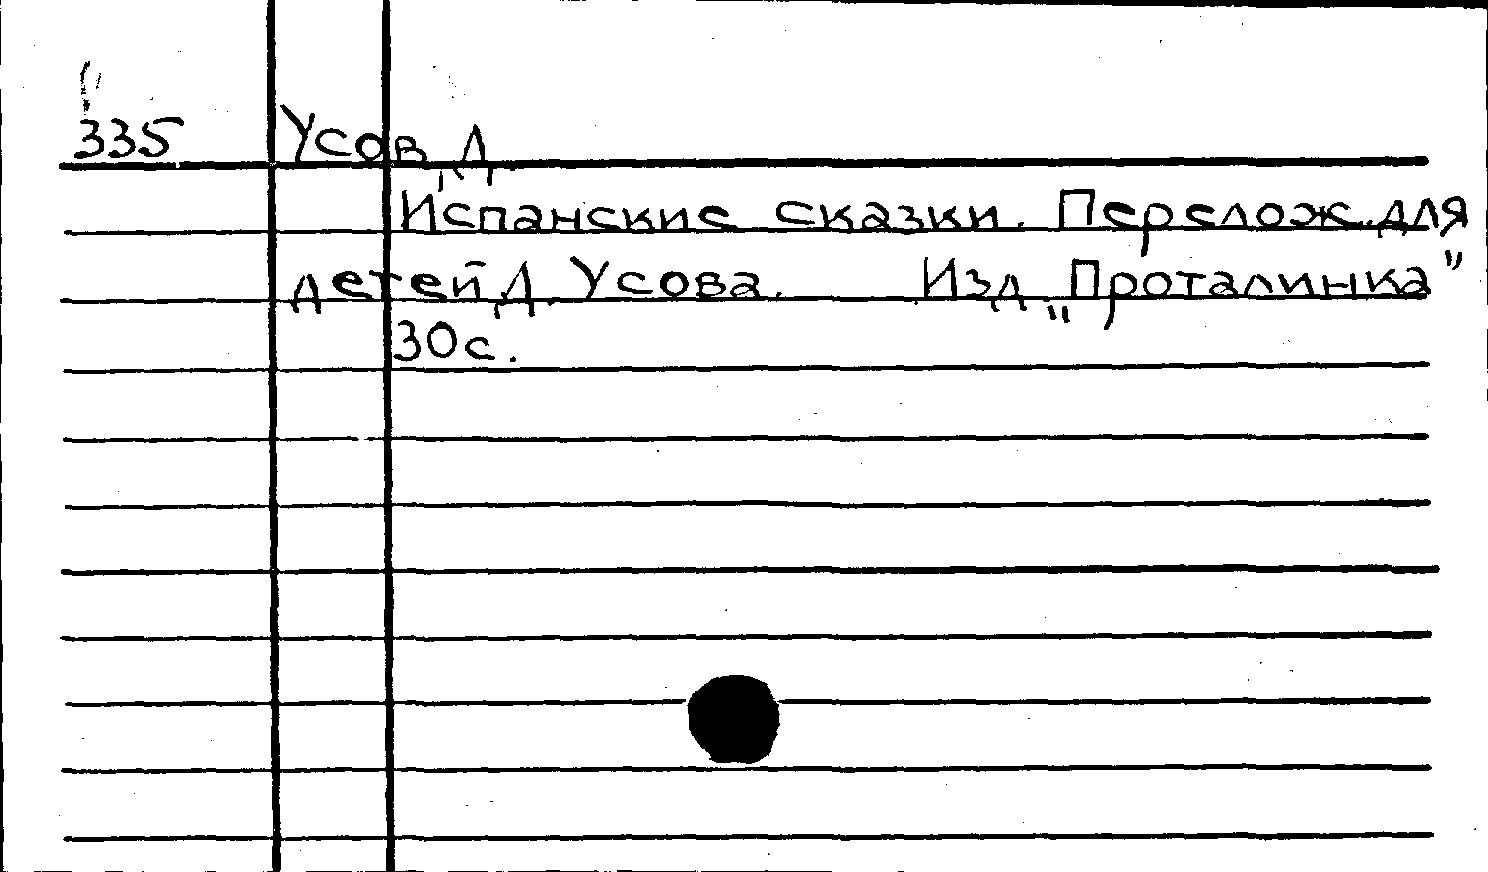 335 Усов, Д
Испанские сказки. Перелож. для
детей Д. Усова. Изд. „Проталинка"
30с.